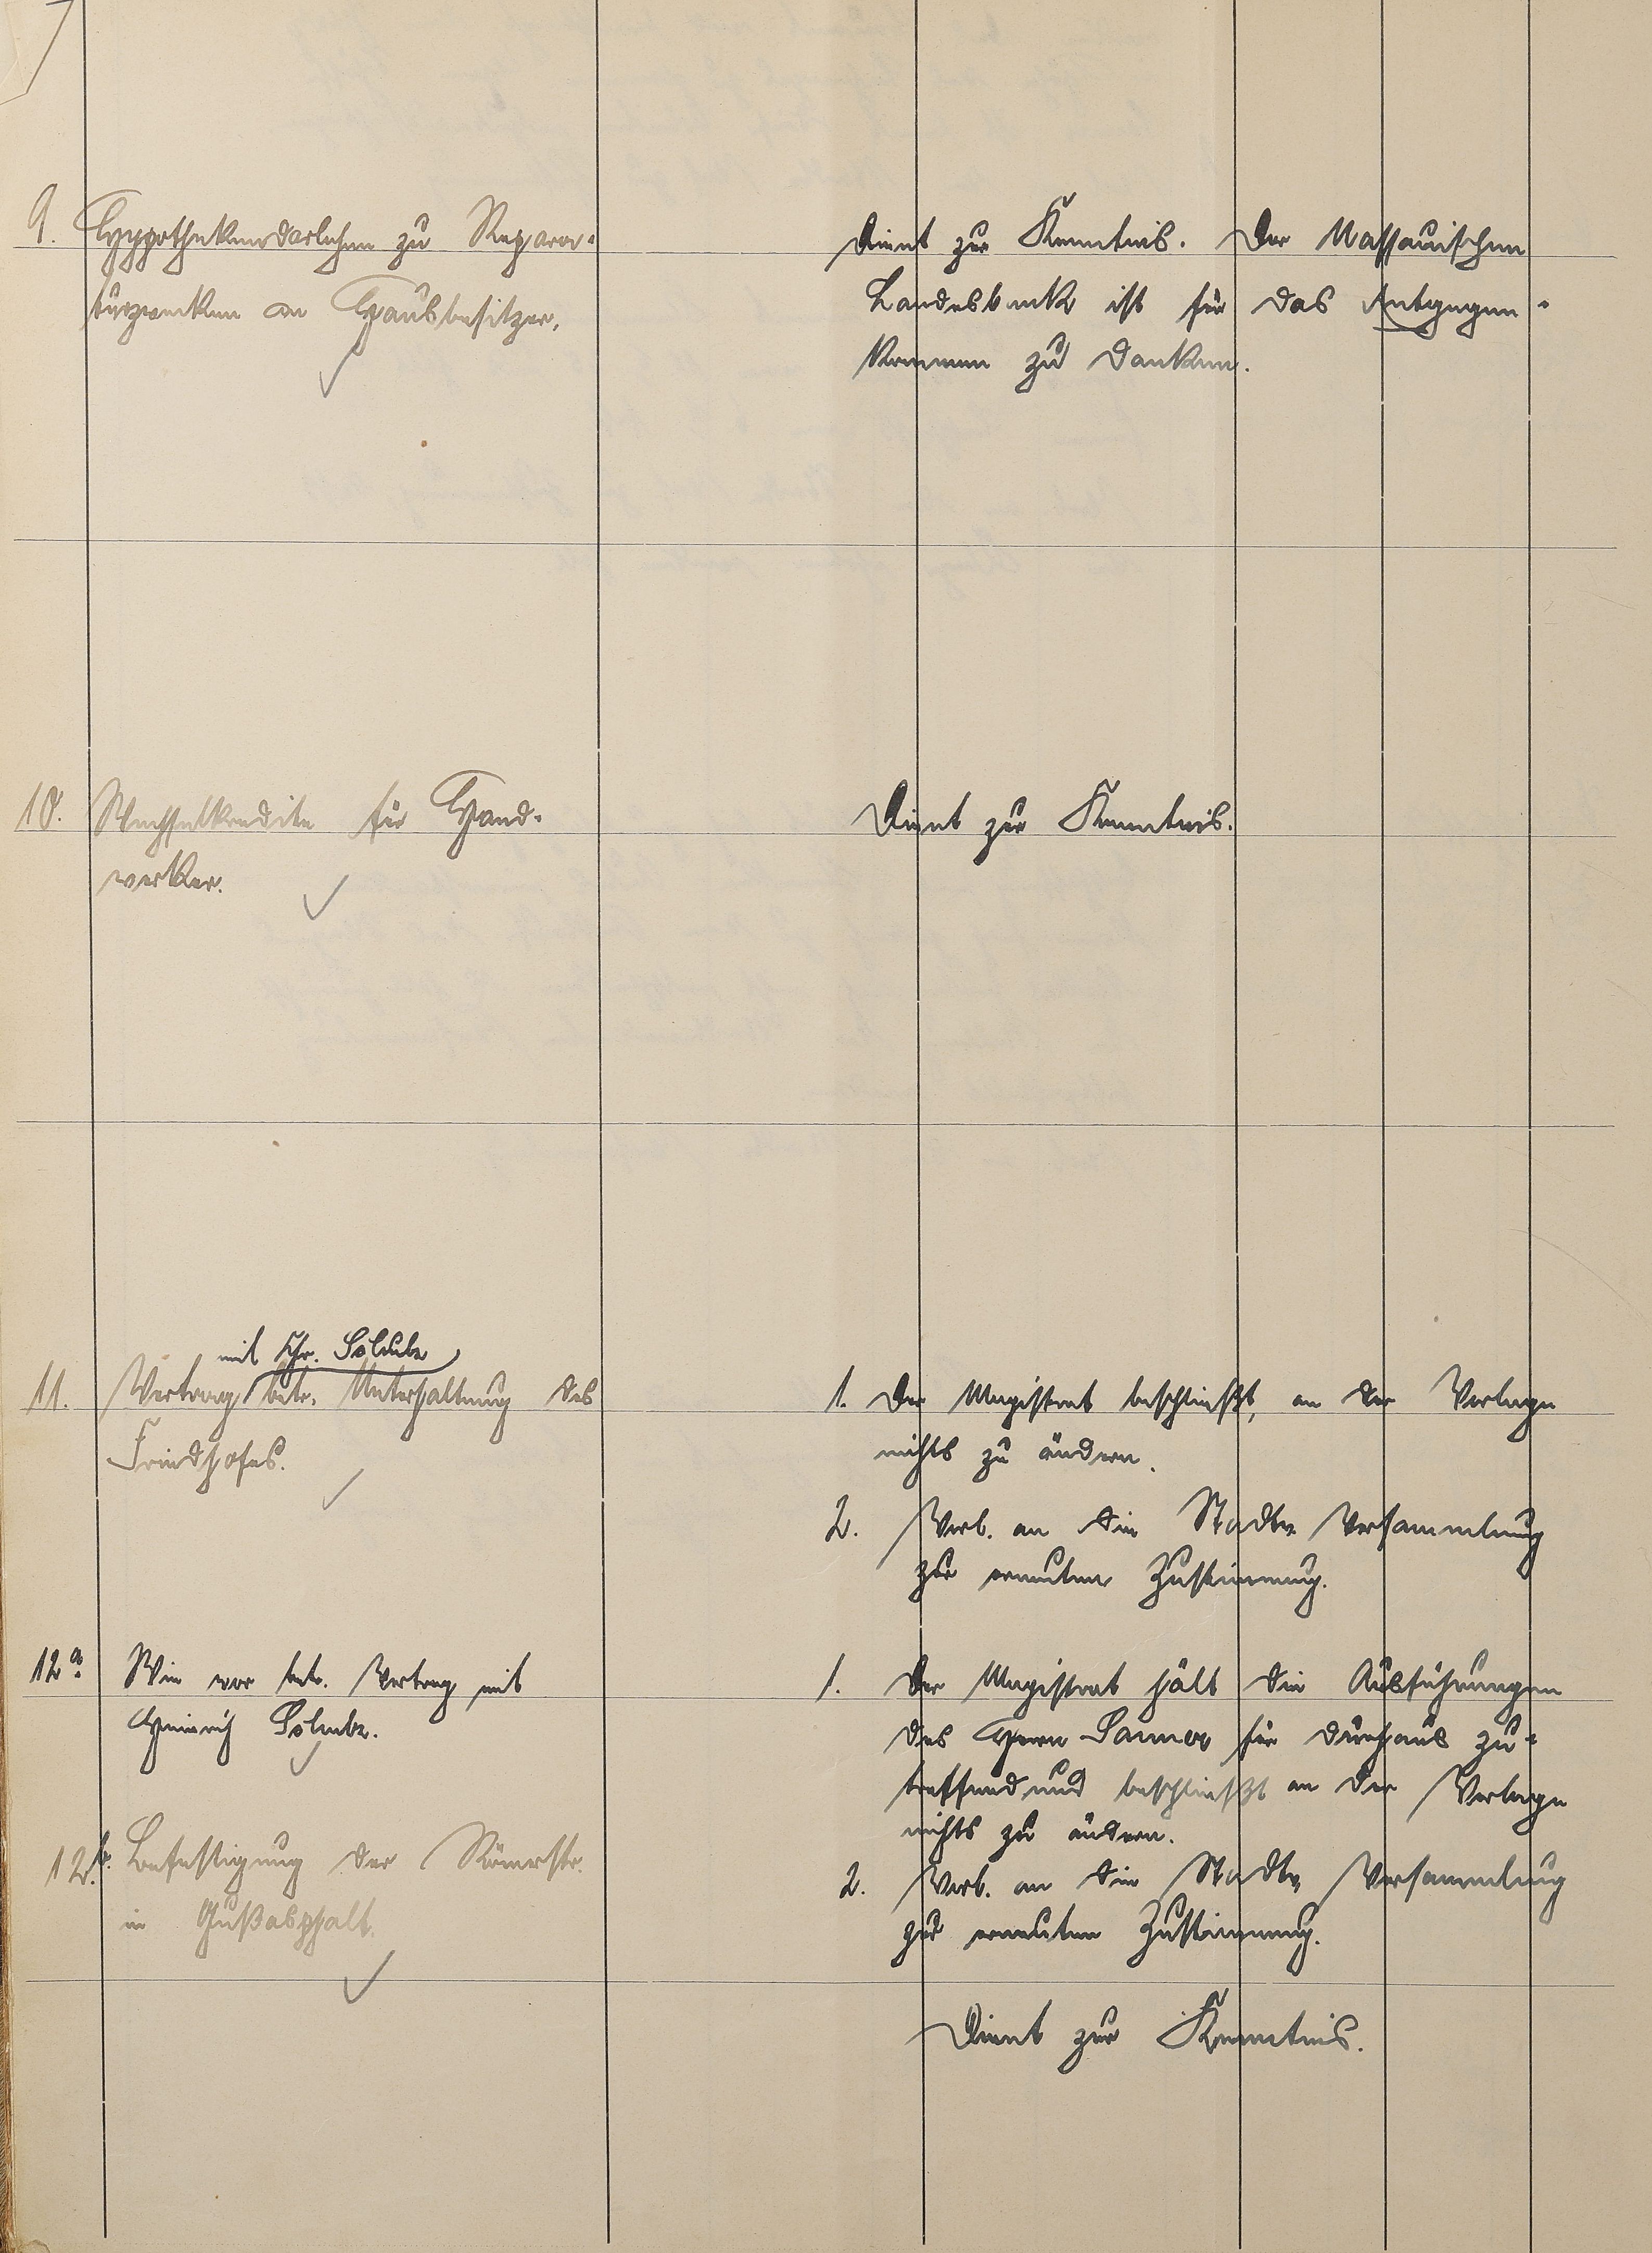 9. Hypothekendarlehen zu Repara-
turzwecken an Hausbesitzer.
Dient zur Kenntnis. Der Nassauischen
Landesbank ist für das Entgegen-
kommen zu danken.
10. Wechselkredite für Hand-
werker.
Dient zur Kenntnis.
mit Chr.
11. Vertrag betr. Unterhaltung des
Friedhofes.
1. Der Magistrat beschließt, an der Vorlage
nichts zu ändern.
2. Verb. an die Stadtv. Versammlung
zur erneuten Zustimmung.
12a. Wie vor betr. Vertrag mit
Heinrich
1. Der Magistrat hält die Ausführungen
des Herrn für durchaus zu-
treffend und beschließt an der Vorlage
nichts zu ändern.
2. Verb. an die Stadtv. Versammlung
zur erneuten Zustimmung.
12b. Befestigung der Römerstr.
in Gußasphalt.
Dient zur Kenntnis.